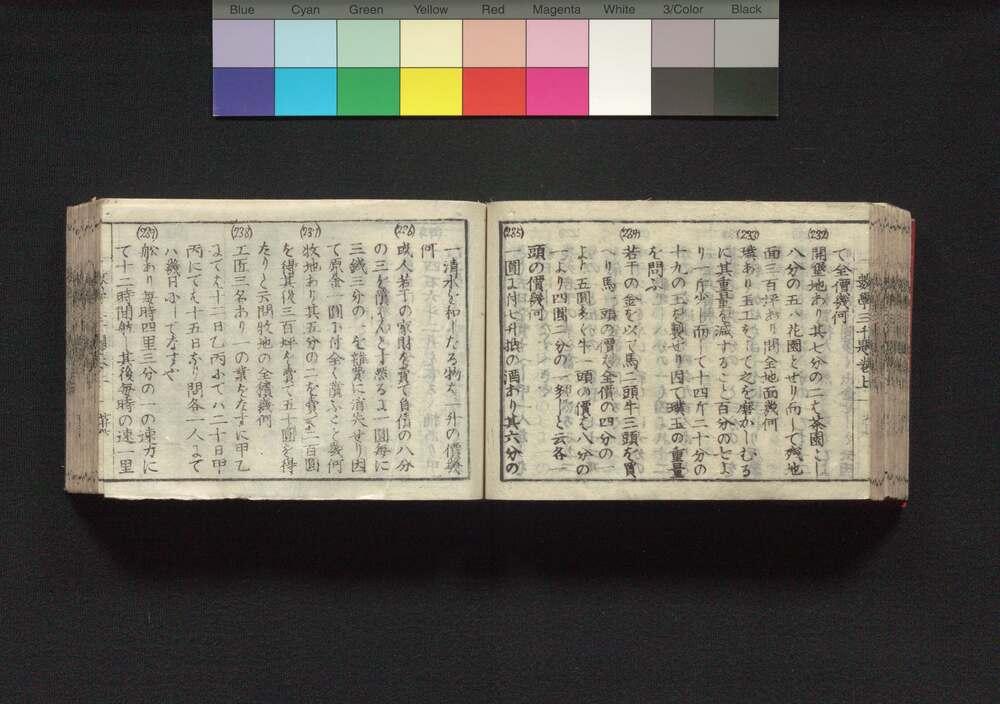 Blue Cyan Green Yellow Red Magenta White 3/Color Black
數學三千題卷上
て全價幾何
(232)
開墾地あり其七分の二を茶園とし
八分の五ハ花園とせり而して殘地
面三百坪あり問全地面幾何
(233)
璞あり玉工をして之を磨かしむる
に其重量を減ずること百分の七よ
り一斤少し而して十四斤二十分の
十九の玉を製せり因て璞玉の重量
を問ふ
(234)
若干の金を以て馬二頭牛三頭を買
へり馬一頭の價ハ全價の四分の一
より五圓多く牛一頭の價ハ八分の
一より四圓二分の一多しと云各一
頭の價幾何
(235)
一圓に付七升抵の酒あり其六分の
一清水を和したる物ハ一升の價幾
何
(236)
或人若干の家財を賣て自債の八分
の三を償ハんとす然るに一圓毎に
三錢三分の一を雜費に消失せり因
て原金一圓に付全く償ふこと幾何
(237)
牧地あり其五分の二を賣て二百圓
を得其後三百坪を賣て五十圓を得
たりと云問牧地の全價幾何
(238)
工匠三名あり一の業をなすに甲乙
にてハ十二日乙丙にてハ二十日甲
丙にてハ十五日なり問各一人にて
ハ幾日にしてなすや
(239)
船あり毎時四里三分の一の速力に
て十二時間航し其後毎時の速一里